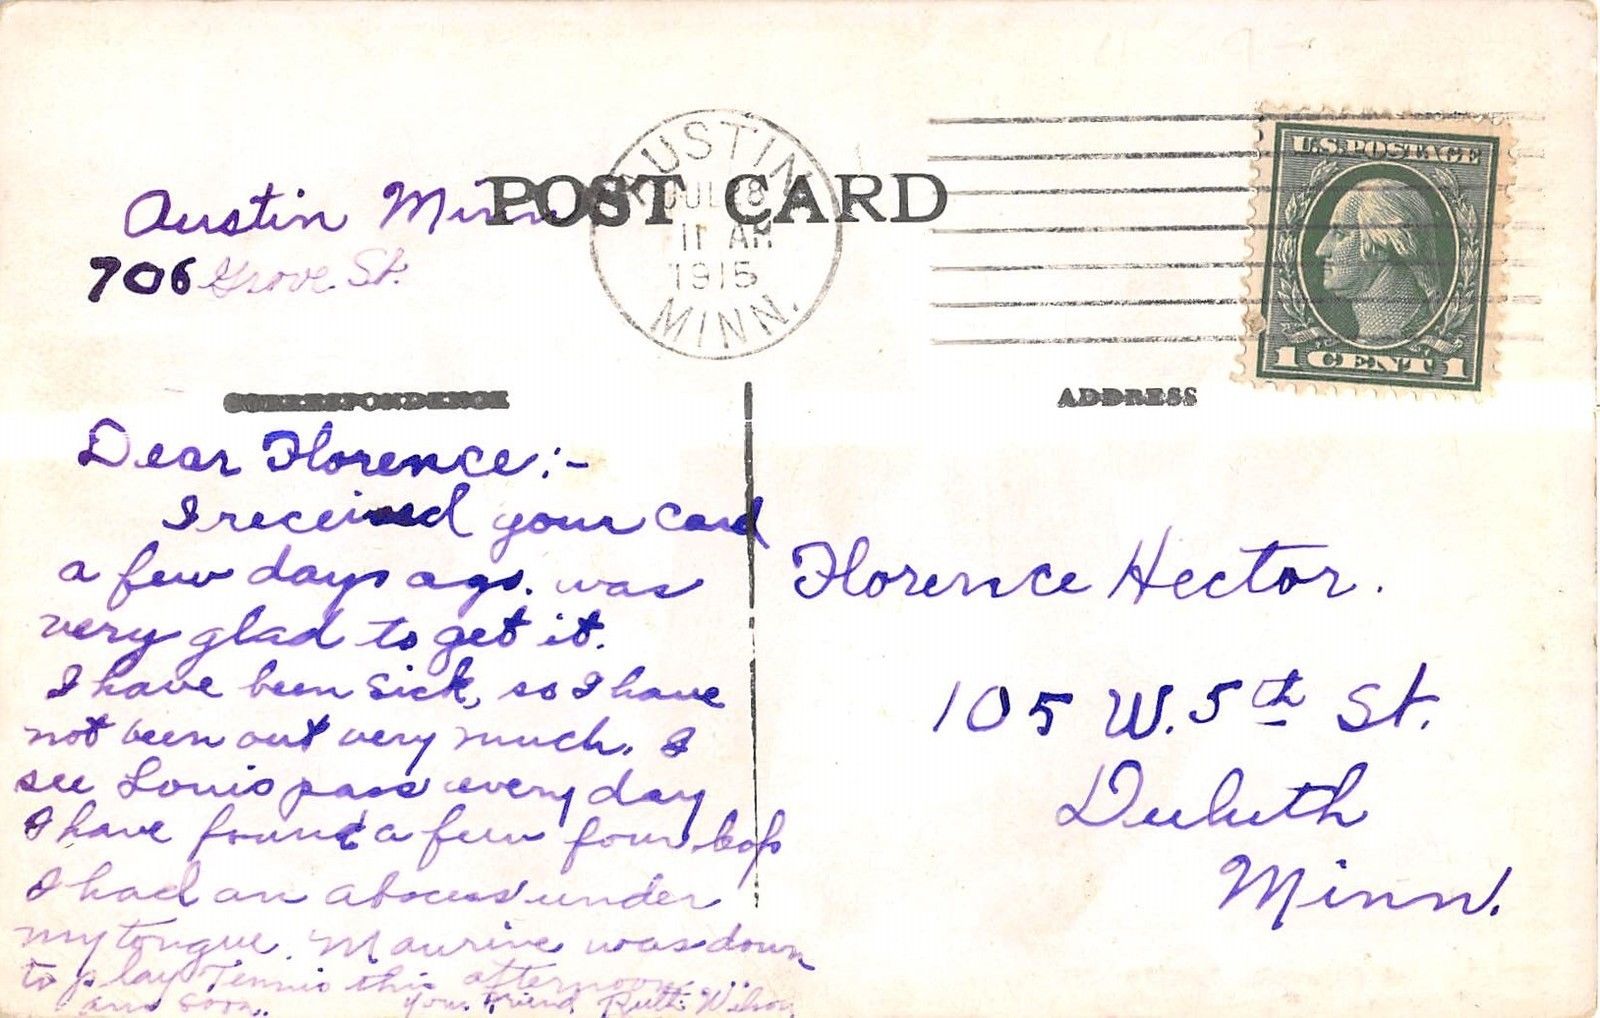 Austin Minn
706 Grove St.
POST CARD
AUSTIN
JUL 28
11 AM
1915
MINN.
U.S. POSTAGE
1 CENT 1
CORRESPONDENCE
ADDRESS
Dear Florence:-
I received your card
a few days ago. was
very glad to get it.
I have been sick, so I have
not been out very much. I
see Louis pass every day
I have found a few four leafs
I had an abscess under
my tongue. Maurine was down
to play Tennis this afternoon
ans soon. Your Friend Ruth Wilson
Florence Hector.
105 W. 5th St.
Duluth
Minn.